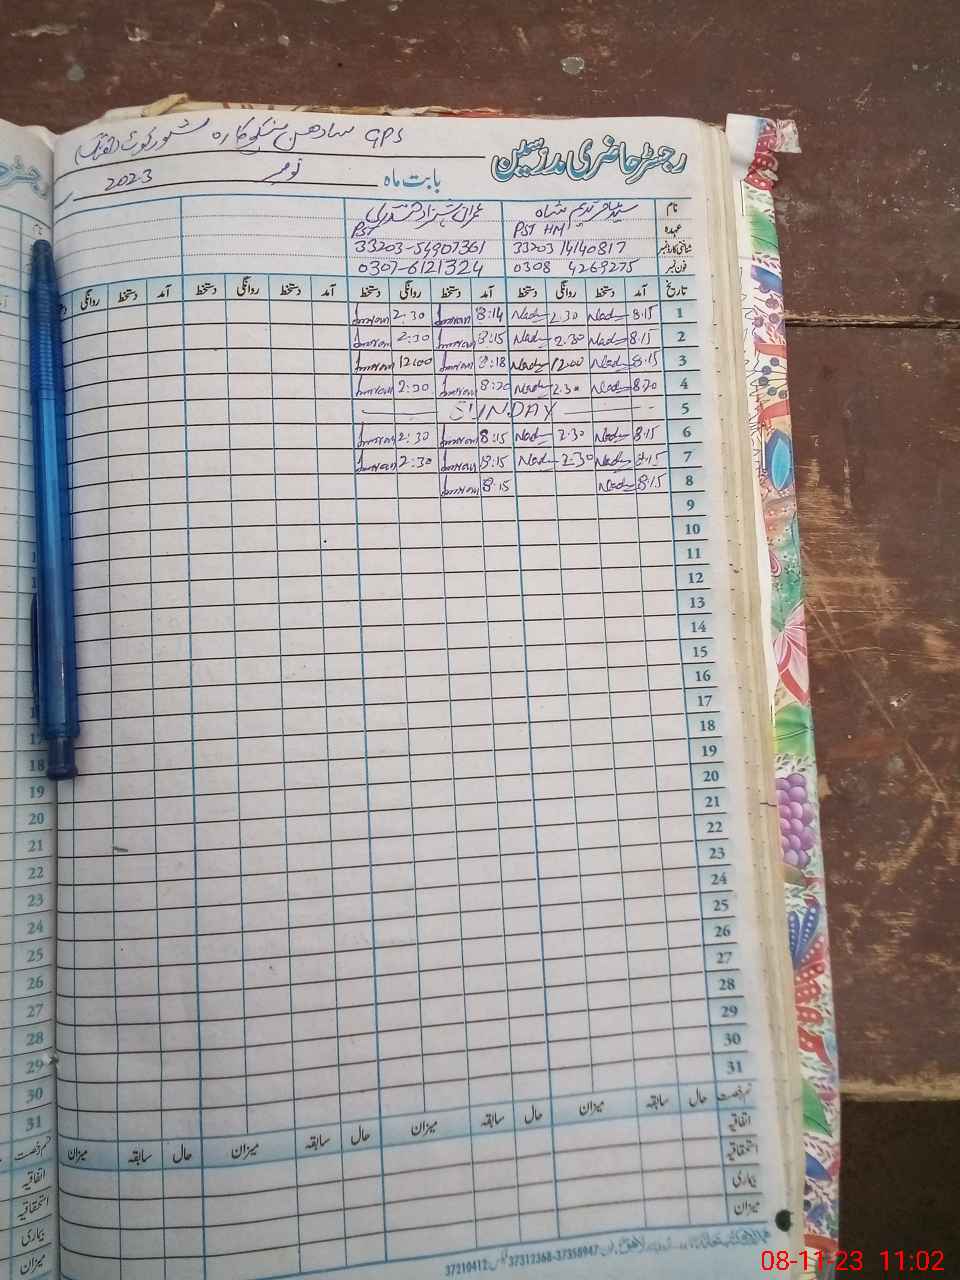 رجسٹر حاضری مدرسین GPS
بابت ماہ نومبر 2023
نام سید ندیم شاہ عمران شہزاد
عہدہ PST HM PST
شناختی کارڈ نمبر 33203 14140817 33203-54907361
فون نمبر 0308 4269275 0307-6121324
تاریخ آمد دستخط روانگی دستخط آمد دستخط روانگی دستخط آمد دستخط روانگی دستخط آمد دستخط روانگی
1 8:15 Nad 2.30 Nad 8:14 Imran 2:30 Imran
2 8.15 Nad 2.30 Nad 8:15 Imran 2:30 Imran
3 8.15 Nad 12.00 Nad 8:18 Imran 12:00 Imran
4 8.20 Nad 2.30 Nad 8:20 Imran 2:30 Imran
5 SUNDAY
6 8.15 Nad 2.30 Nad 8:15 Imran 2:30 Imran
7 8.15 Nad 2.30 Nad 8:15 Imran 2:30 Imran
8 8.15 Nad 8:15 Imran
9
10
11
12
13
14
15
16
17
18
19
20
21
22
23
24
25
26
27
28
29
30
31
قسم رخصت حال سابقہ میزان حال سابقہ میزان حال سابقہ میزان حال سابقہ میزان
اتفاقیہ
استحقاقیہ
بیماری
میزان
37312368-37358947
37210412
17
18
19
20
21
22
23
24
25
26
27
28
29
30
31
قسم رخصت
اتفاقیہ
استحقاقیہ
بیماری
میزان
08-11-23 11:02